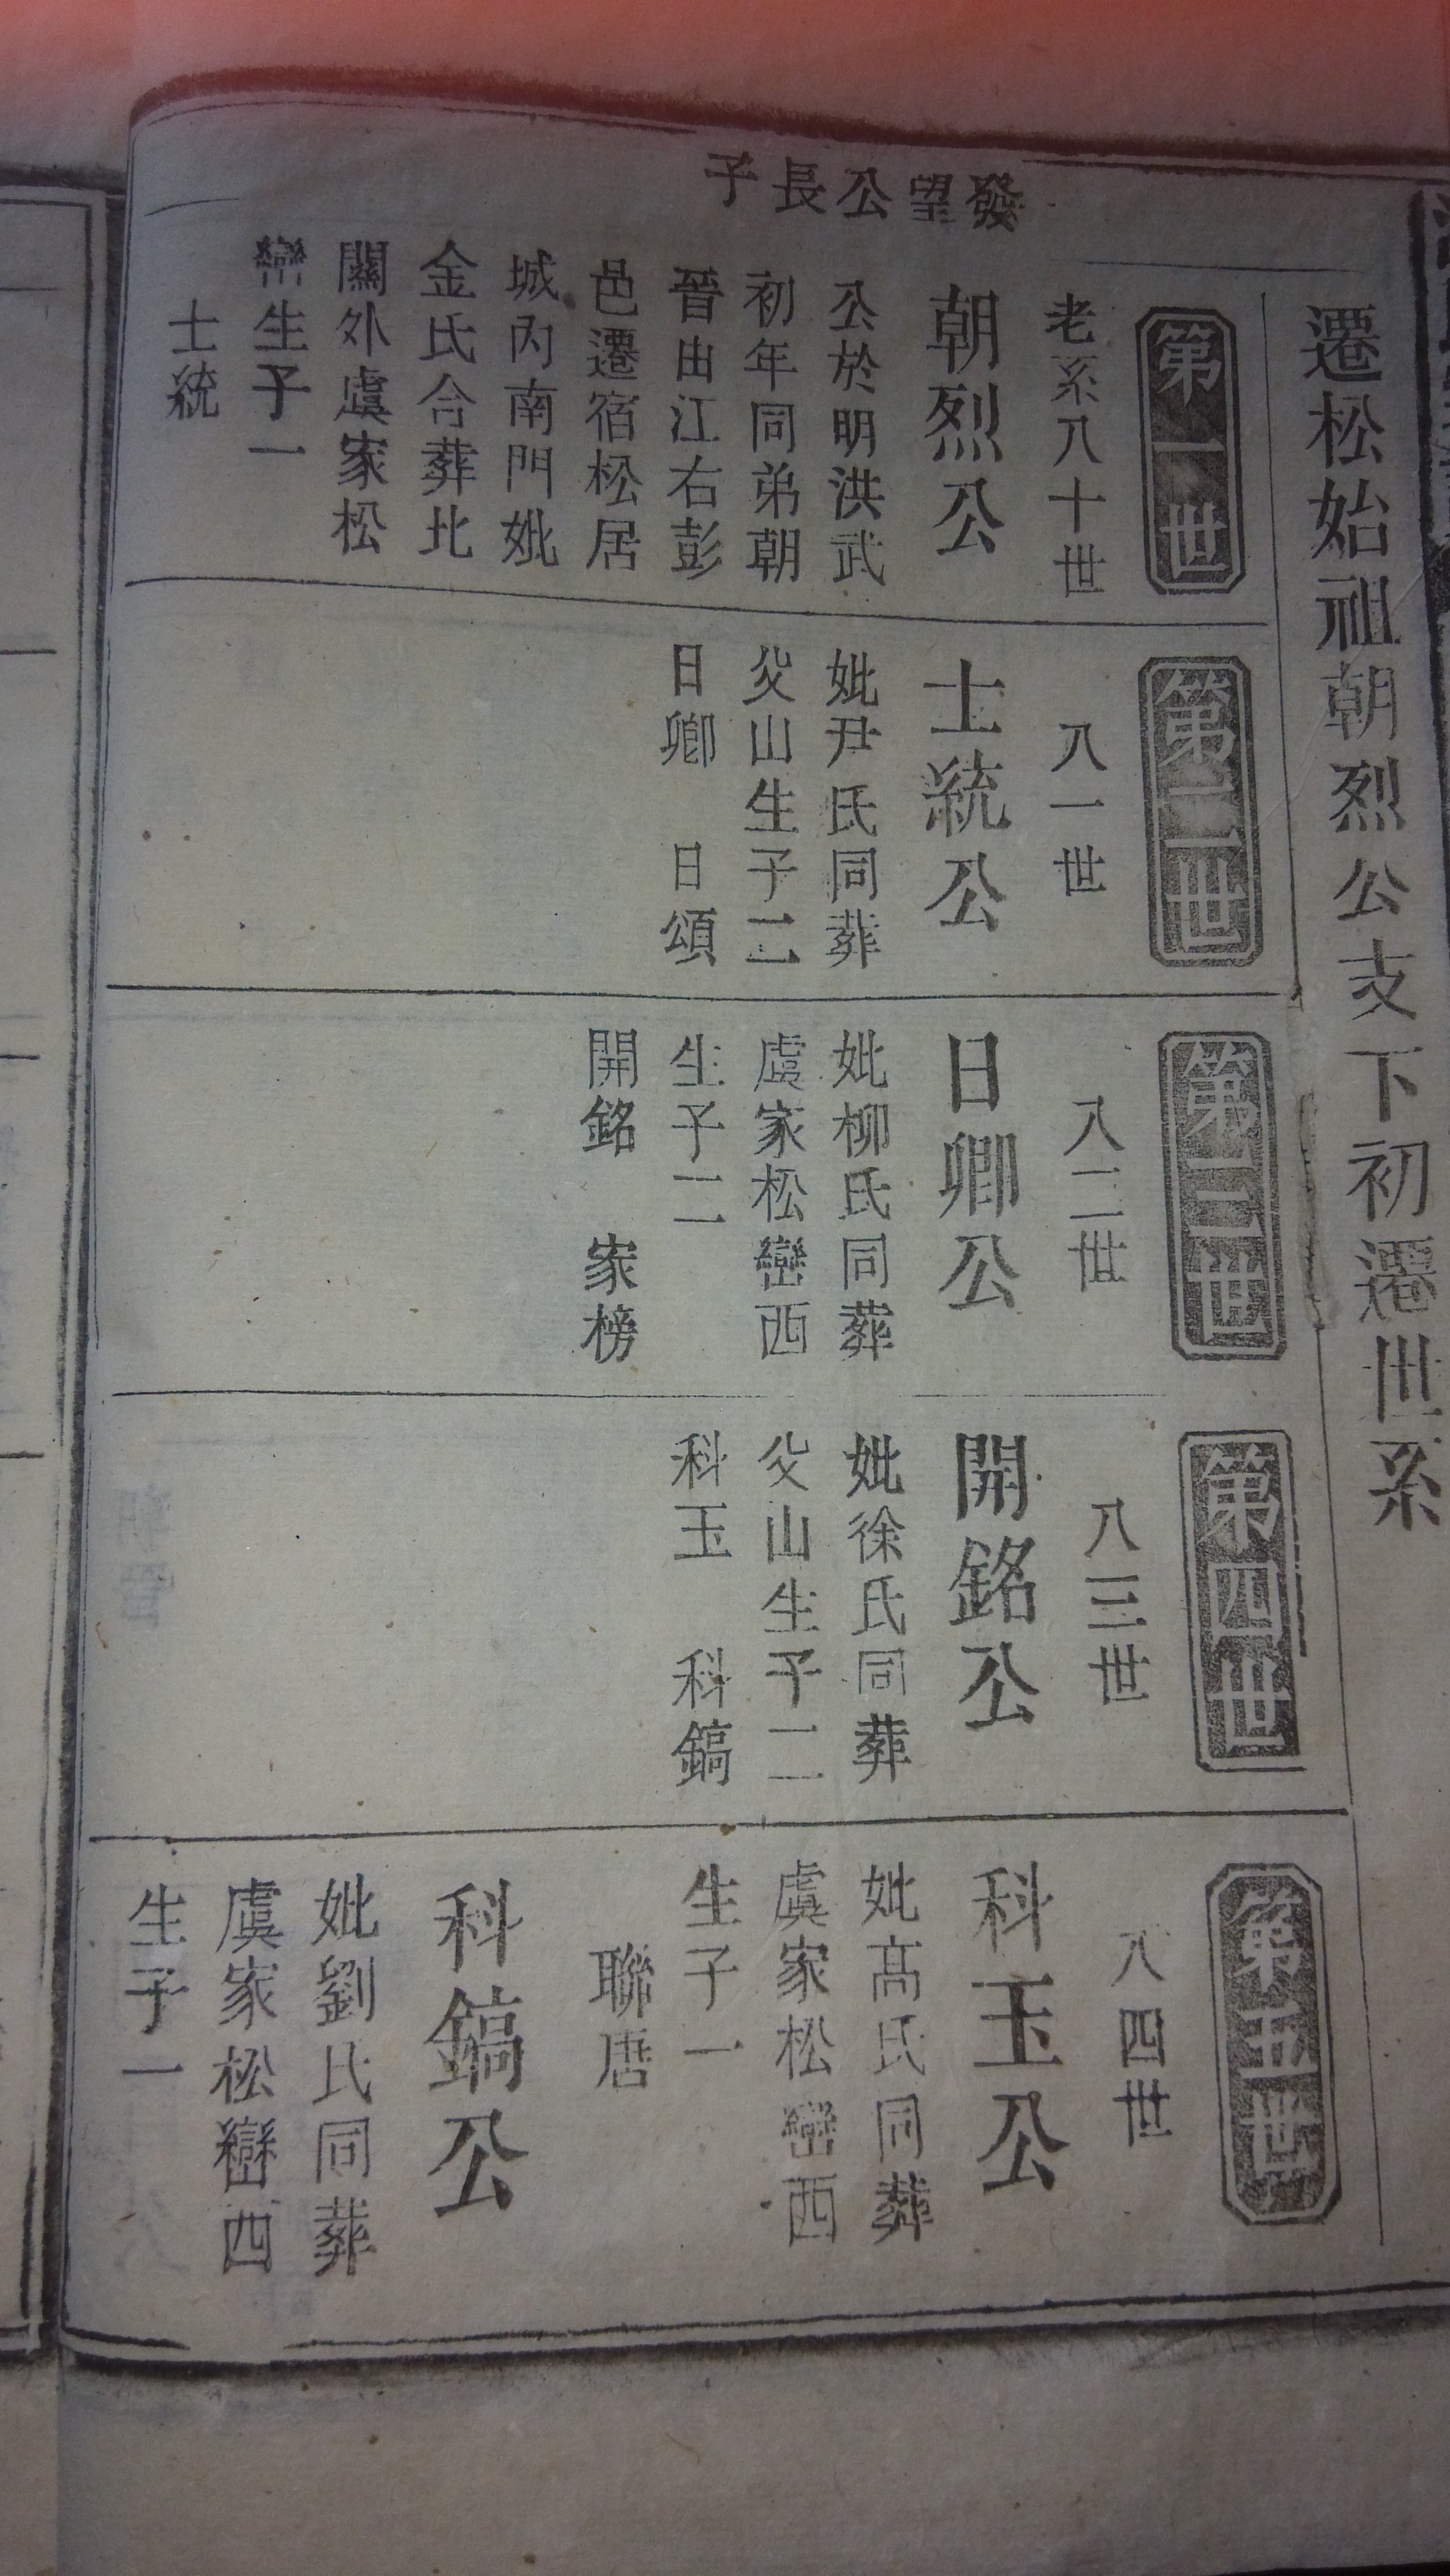 遷松始祖朝烈公支下初遷世系
發望公長子
第一世
老系八十世
朝烈公
公於明洪武
初年同弟朝
晉由江右彭
邑遷宿松居
城內南門妣
金氏合葬北
關外虞家松
巒生子一
士統
第二世
八一世
士統公
妣尹氏同葬
父山生子二
日卿 日頌
第三世
八二世
日卿公
妣柳氏同葬
虞家松巒西
生子二
開銘 家榜
第四世
八三世
開銘公
妣徐氏同葬
父山生子二
科玉 科鎬
第五世
八四世
科玉公
妣高氏同葬
虞家松巒西
生子一
聯唐
科鎬公
妣劉氏同葬
虞家松巒西
生子一